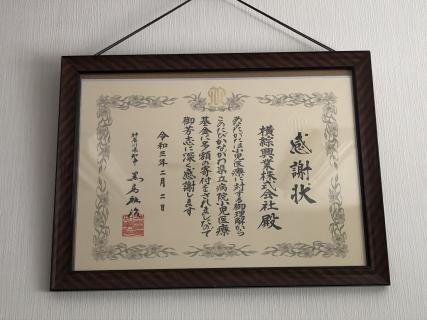 感謝状
横綜興業株式会社 殿
あなたは小児医療に対する御理解から
このたびかながわ県立病院小児医療
基金に多額の寄付をされましたので
御芳志に深く感謝します
令和三年二月二日
神奈川県知事 黒岩祐治